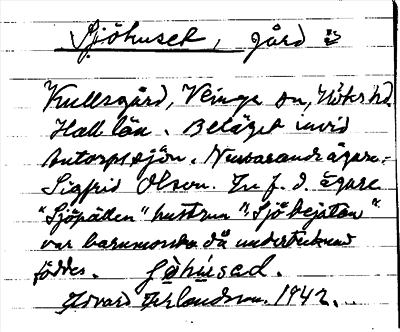 Sjöhuset, gård
Kullsgård, Veinge sn, Höks hd
Hall. län. Beläget invid
Antorpssjön. Nuvarande ägare:
Sigfrid Olson. En f. d. ägare
"Sjöpätten" hustrun "Sjöbejstan"
var barnmorska då undertecknad
föddes.
Edvard Erlandsson. 1942.